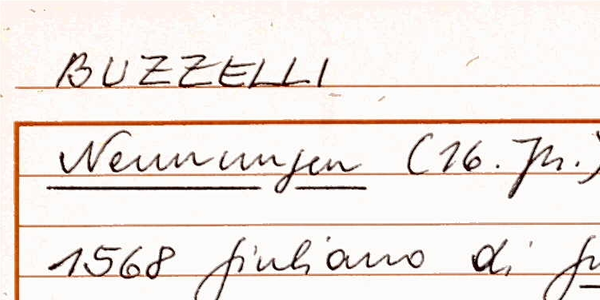 BUZZELLI
Nennungen (16. Jh.)
1568 Giuliano di